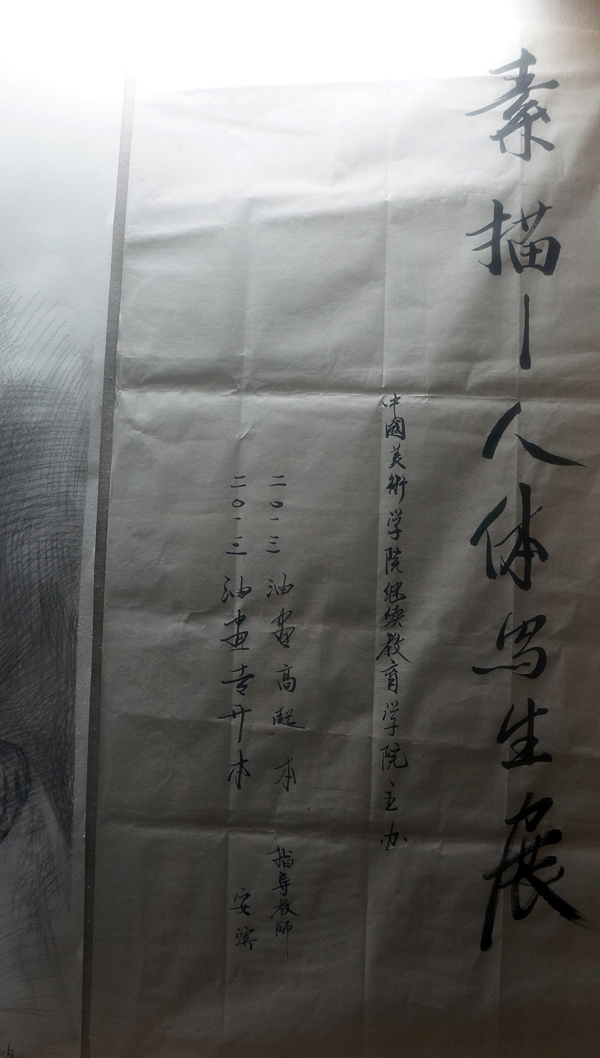 素描—人体写生展
中國美術学院继续教育学院主办
二〇一三 油畫高起本 指导教師
二〇一三 油畫专升本 安滨